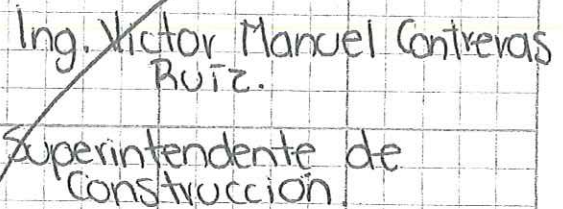 Ing. Victor Manuel Contreras
Ruiz.
Superintendente de
Construcción